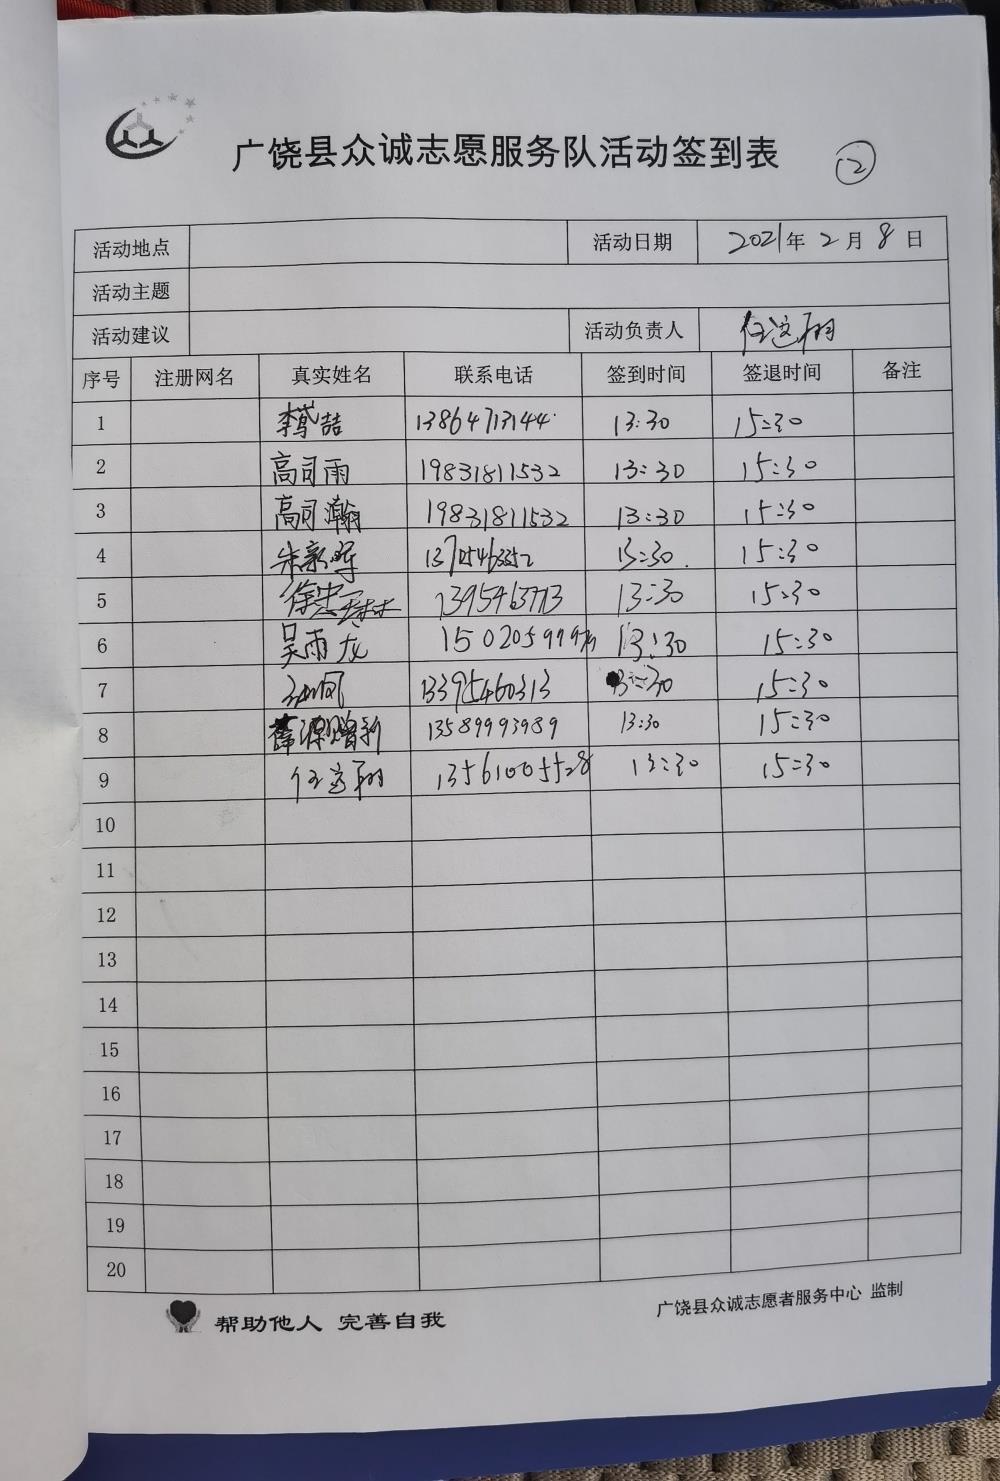 广饶县众诚志愿服务队活动签到表 ②
活动地点 活动日期 2021年2月8日
活动主题
活动建议 活动负责人
序号 注册网名 真实姓名 联系电话 签到时间 签退时间 备注
1 李 喆 13864713144 13:30 15:30
2 高司雨 19831811532 13:30 15:30
3 高司瀚 19831811532 13:30 15:30
4 朱新晖 13:30 15:30
5 徐 13:30 15:30
6 吴雨龙 13:30 15:30
7 13395460313 13:30 15:30
8 13589993989 13:30 15:30
9 13561005528 13:30 15:30
10
11
12
13
14
15
16
17
18
19
20
帮助他人 完善自我 广饶县众诚志愿者服务中心 监制